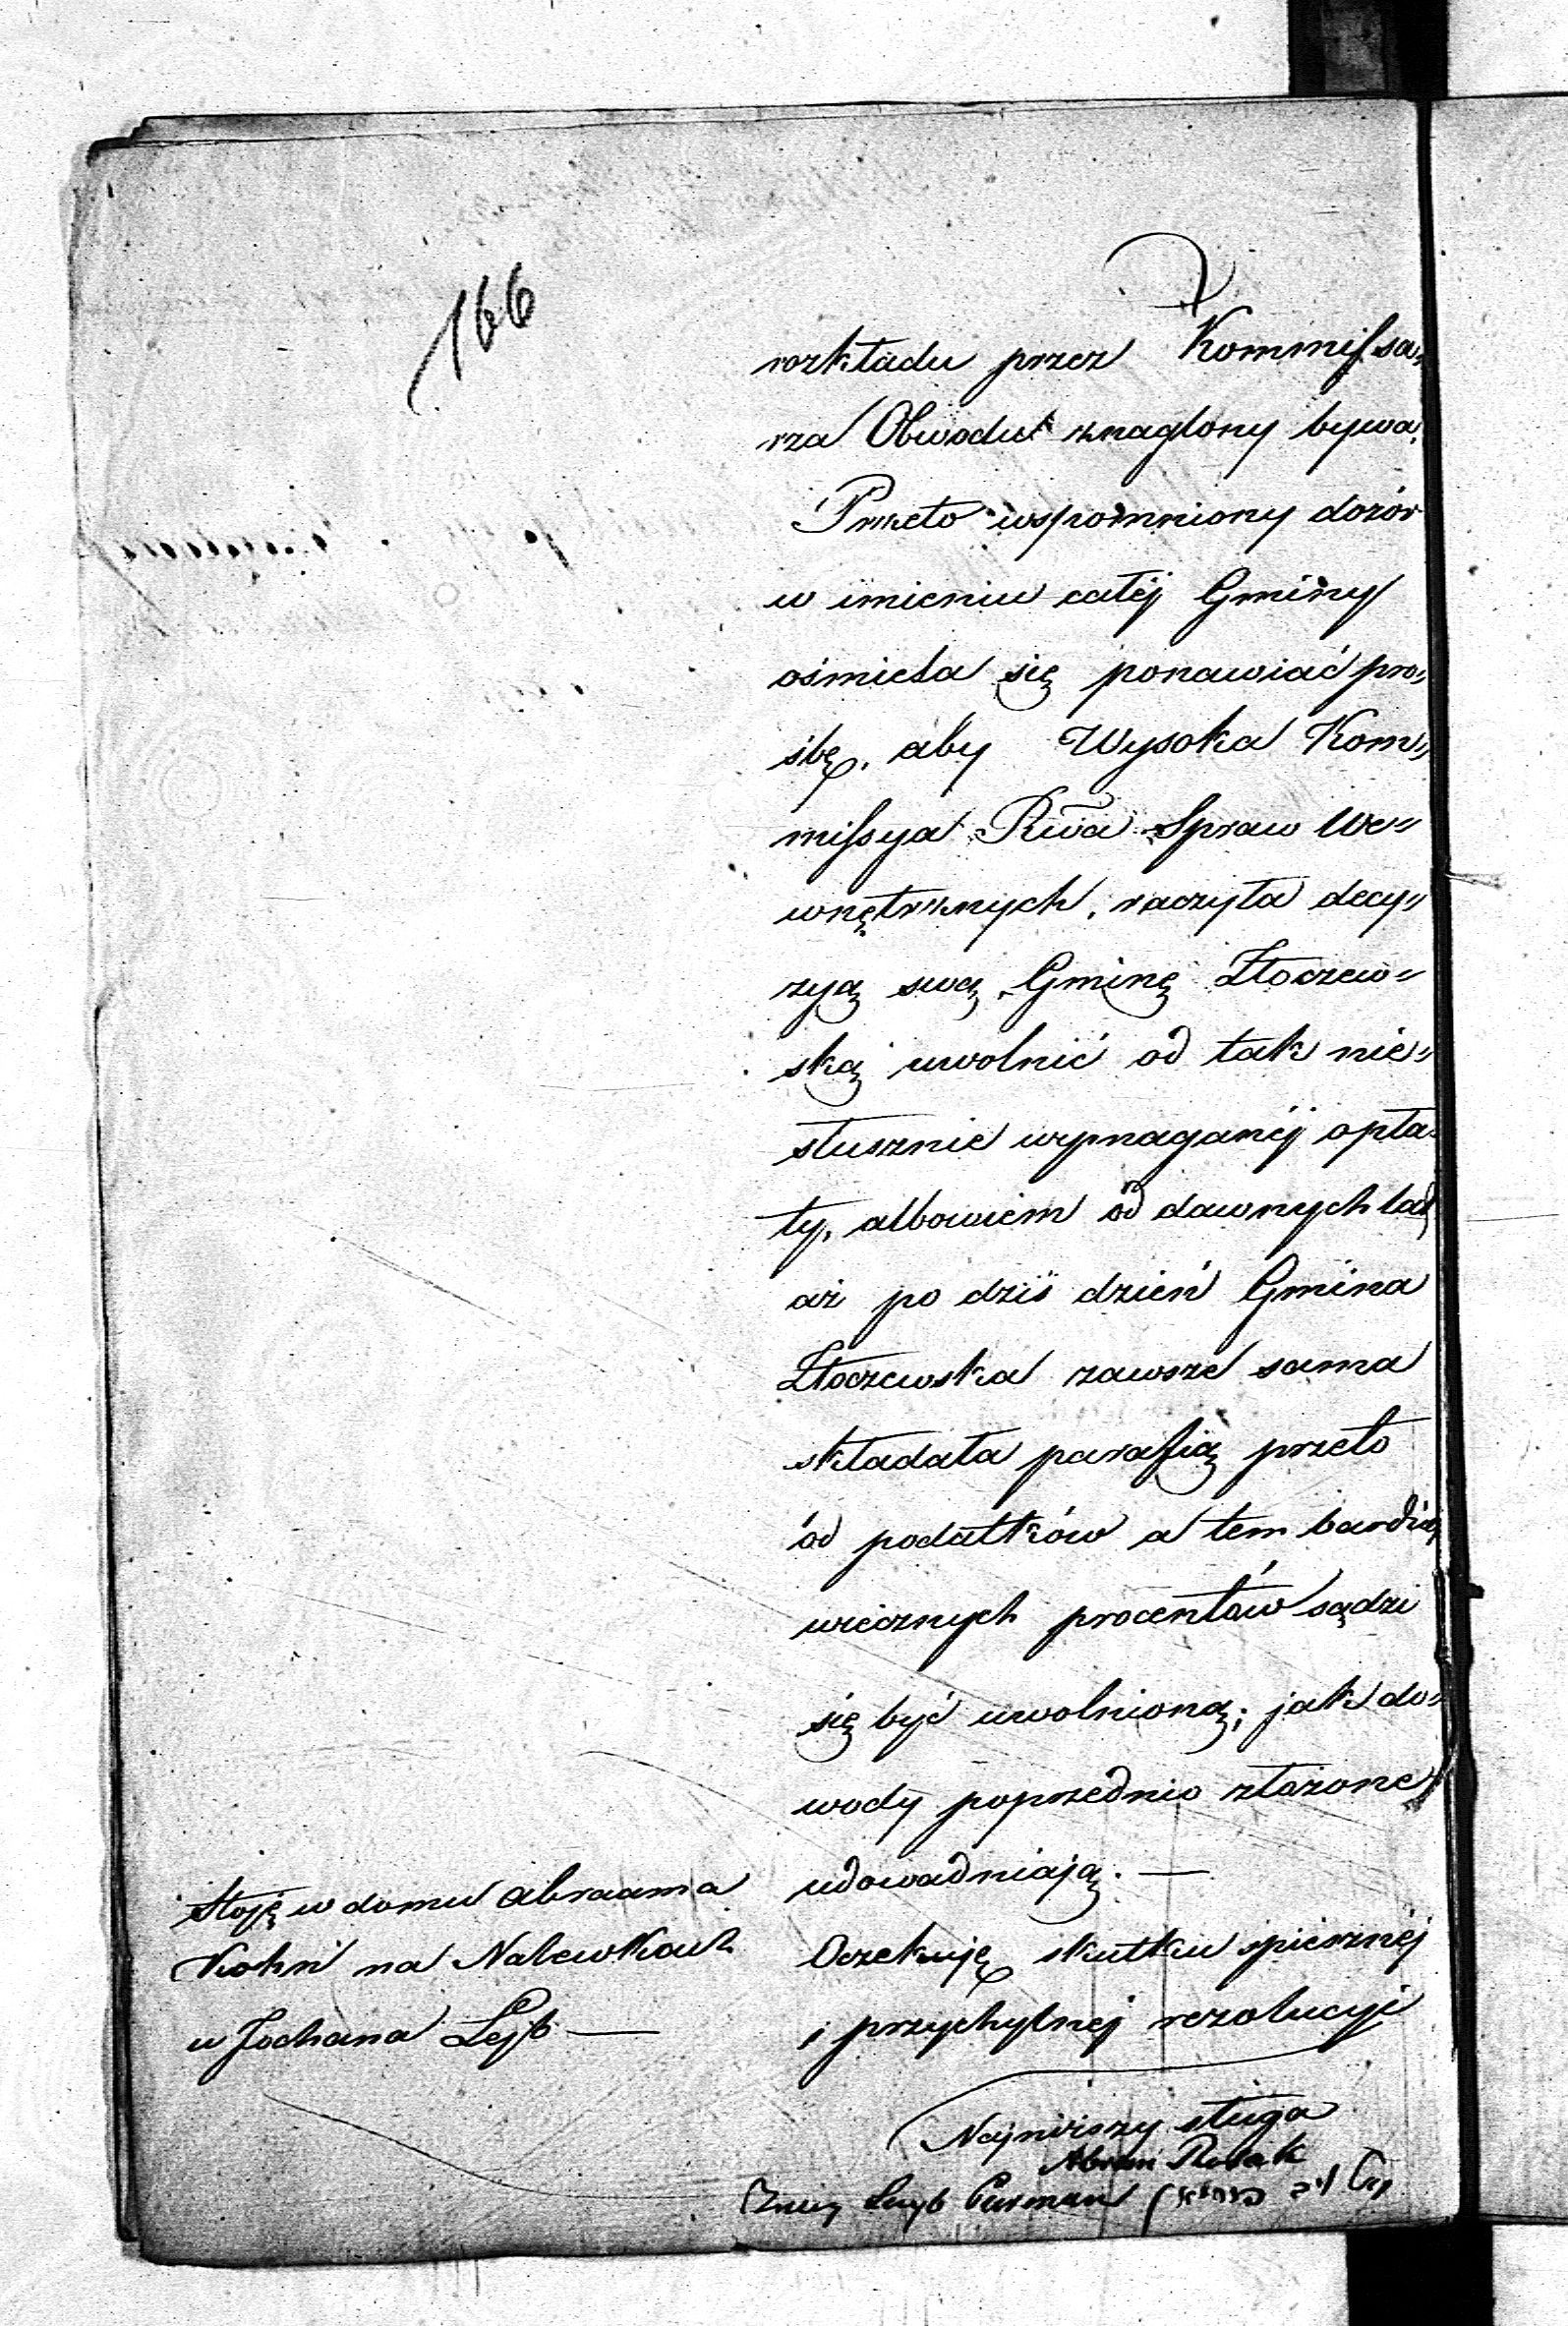 166
rozkładu przez Kommissa„
rza Obwodu znaglony bywa.
Przeto wspomniony dozór
w imieniu całéj Gminy
ośmiela się ponawiać pro„
śbę, aby Wysoka Kom„
missya Rwa Spraw We„
wnętrznych, raczyła decy„
zyą swą Gminę Złoczew„
ską uwolnić od tak nie„
słusznie wymaganéj opła„
ty, albowiem od dawnych lat
aż po dziś dzień Gmina
Złoczewska zawsze sama
składała parafią przeto
od podatków a tem bardziéj
wiecznych procentów sądzi
się być uwolnioną; jak do„
wody poprzednio złożone
udowadniają. —
Oczekuję skutku śpiesznéj
i przychylnej rezolucyi
Stoję w domu Abraama
Kohn na Nalewkach
u Jochana Lejb —
Najniższy sługa
Abram
Leyb Furman